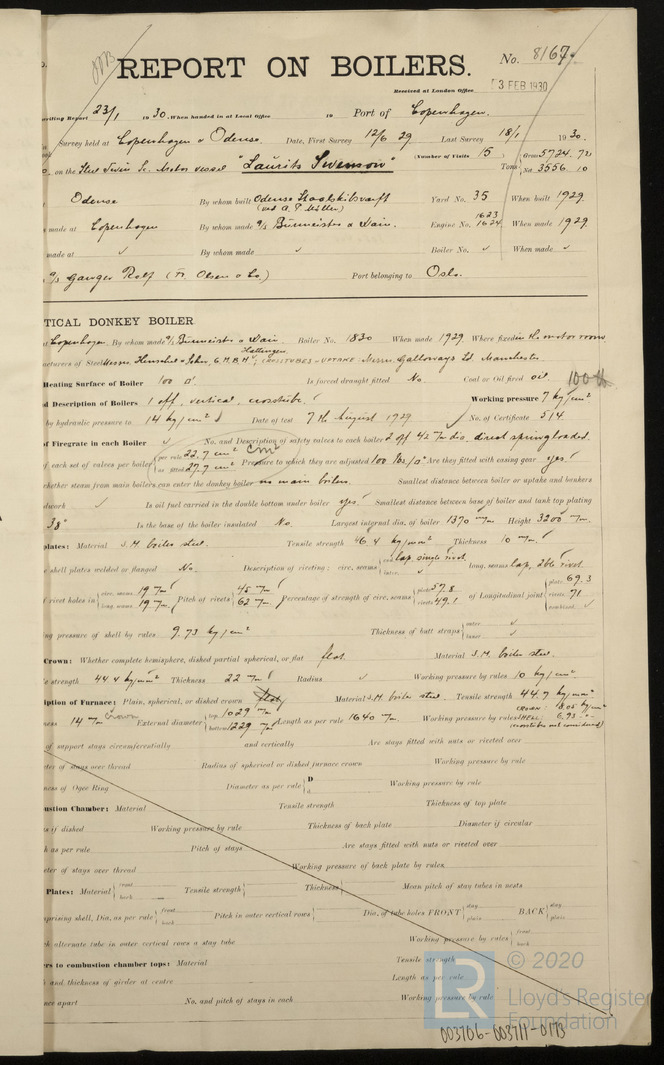 REPORT ON BOILERS.
No. 8167
3 FEB 1930
Received at London Office
writing Report 23/1 1930. When handed in at Local Office 19 Port of Copenhagen.
Survey held at Copenhagen & Odense. Date, First Survey 12/6 29. Last Survey 18/1 1930.
on the Steel Twin Sc. Motor vessel "Laurits Swenson" (Number of Visits 15) Tons Gross 5724.72 Net 3556.10
Odense By whom built Odense Staalskibsværft (ved A. P. Möller) Yard No. 35 When built 1929.
made at Copenhagen By whom made A/S Burmeister & Wain. Engine No. 1623 1624 When made 1929.
made at ✓ By whom made ✓ Boiler No. ✓ When made ✓
A/S Ganger Rolf (Fr. Olsen & Co.) Port belonging to Oslo.
TICAL DONKEY BOILER
at Copenhagen. By whom made A/S Burmeister & Wain. Boiler No. 1830 When made 1929. Where fixed in the motor room
acturers of Steel Messrs. Henschel & Sohn, G.M.B.H. Hattingen, CROSSTUBES - UPTAKE Messrs. Galloways Ld. Manchester
Heating Surface of Boiler 100 □' Is forced draught fitted No. Coal or Oil fired oil 100 lb
d Description of Boilers 1 off, vertical, crosstube. Working pressure 7 kg/cm²
by hydraulic pressure to 14 kg/cm² Date of test 7th August 1929 No. of Certificate 514
of Firegrate in each Boiler ✓ No. and Description of safety valves to each boiler 2 off 42 m/m dia. direct spring loaded.
of each set of valves per boiler per rule 22.7 cm² as fitted 27.7 cm² cm² Pressure to which they are adjusted 100 lbs/□" Are they fitted with easing gear yes
whether steam from main boilers can enter the donkey boiler no main boilers. Smallest distance between boiler or uptake and bunkers
dwork ✓ Is oil fuel carried in the double bottom under boiler yes. Smallest distance between base of boiler and tank top plating
38" Is the base of the boiler insulated No. Largest internal dia. of boiler 1370 m/m Height 3200 m/m.
plates: Material S.M. boiler steel. Tensile strength 46.4 kg/mm² Thickness 10 m/m.
e shell plates welded or flanged No. Description of riveting: circ. seams end lap single rivet. inter. ✓ long. seams lap, dbl rivet.
f rivet holes in circ. seams 19 m/m long. seams 19 m/m. Pitch of rivets 45 m/m 62 m/m Percentage of strength of circ. seams plate 57.8 rivets 49.1 of Longitudinal joint plate 69.3 rivets 71. combined ✓
ng pressure of shell by rules 9.73 kg/cm² Thickness of butt straps outer ✓ inner ✓
Crown: Whether complete hemisphere, dished partial spherical, or flat flat. Material S.M. boiler steel.
e strength 44.4 kg/mm² Thickness 22 m/m Radius ✓ Working pressure by rules 10 kg/cm².
iption of Furnace: Plain, spherical, or dished crown flat Material S.M. boiler steel. Tensile strength 44.7 kg/mm²
ness 14 m/m crown External diameter top 1029 m/m bottom 1229 m/m Length as per rule 1640 m/m. Working pressure by rules CROWN: 8.05 kg/cm² SHELL: 6.93 -"- (crosstubes not considered)
of support stays circumferentially and vertically Are stays fitted with nuts or riveted over
ter of stays over thread Radius of spherical or dished furnace crown Working pressure by rule
ness of Ogee Ring Diameter as per rule D d Working pressure by rule
ustion Chamber: Material Tensile strength Thickness of top plate
s if dished Working pressure by rule Thickness of back plate Diameter if circular
h as per rule Pitch of stays Are stays fitted with nuts or riveted over
eter of stays over thread Working pressure of back plate by rules
Plates: Material front back Tensile strength Thickness Mean pitch of stay tubes in nests
prising shell, Dia. as per rule front back Pitch in outer vertical rows Dia. of tube holes FRONT stay plain BACK stay plain
h alternate tube in outer vertical rows a stay tube Working pressure by rules front back
ers to combustion chamber tops: Material Tensile strength
and thickness of girder at centre Length as per rule
nce apart No. and pitch of stays in each Working pressure by rule
LR © 2020
Lloyd's Register
Foundation
003706-003711-0173